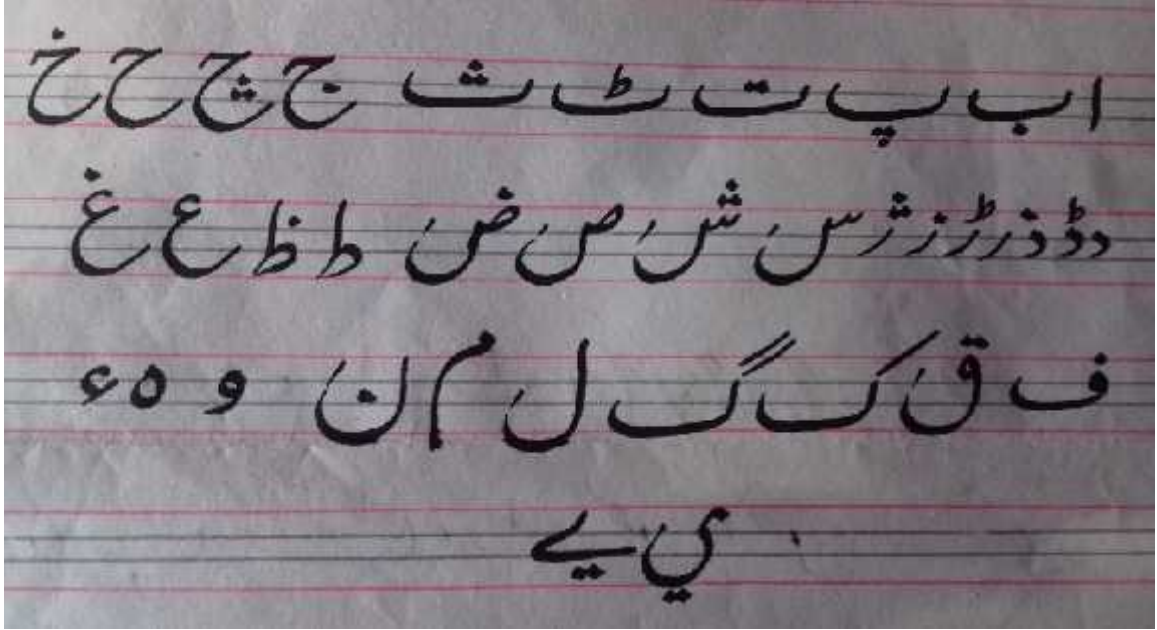 ا ب پ ت ٹ ث ج چ ح خ
د ڈ ذ ر ڑ ز ژ س ش ص ض ط ظ ع غ
ف ق ک گ ل م ن و ہ ء
ي ے